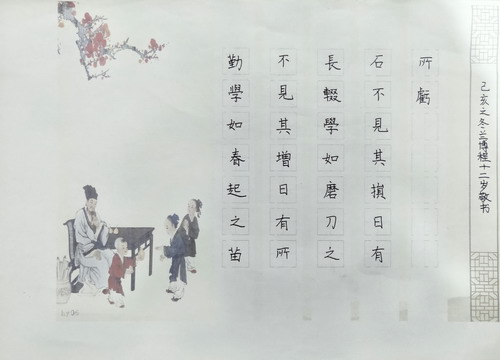 勤學如春起之苗
不見其增日有所
長輟學如磨刀之
石不見其損日有
所虧
己亥之冬兰博程十二岁敬书